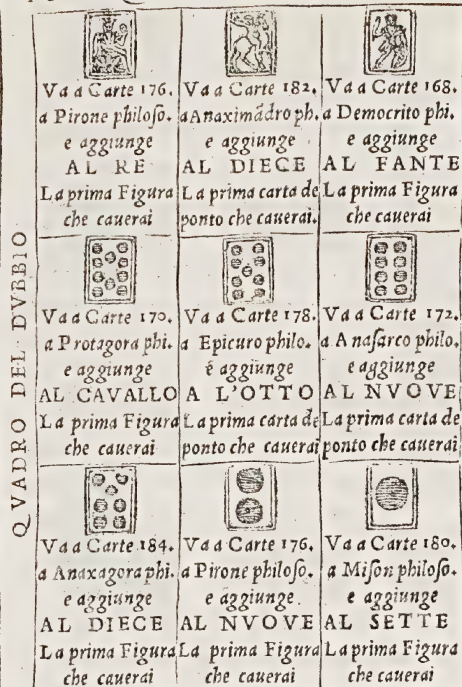 QVADRO DEL DVBBIO.
Va a Carte 176.
a Pirone philoſo.
e aggiunge
AL RE
La prima Figura
che cauerai
Va a Carte 182.
a Anaximãdro ph.
e aggiunge
AL DIECE
La prima carta de
ponto che cauerai.
Va a Carte 168.
a Democrito phi.
e aggiunge
AL FANTE
La prima Figura
che cauerai
Va a Carte 170.
a Protagora phi.
e aggiunge
AL CAVALLO
La prima Figura
che cauerai
Va a Carte 178.
a Epicuro philo.
é aggiunge
A L'OTTO
La prima carta de
ponto che cauerai
Va a Carte 172.
a Anaſarco philo.
e aggiunge
AL NVOVE
La prima carta de
ponto che cauerai
Va a Carte 184.
a Anaxagora phi.
e aggiunge
AL DIECE
La prima Figura
che cauerai
Va a Carte 176.
a Pirone philoſo.
e aggiunge.
AL NVOVE
La prima Figura
che cauerai
Va a Carte 180.
a Miſon philoſo.
e aggiunge
AL SETTE
La prima Figura
che cauerai